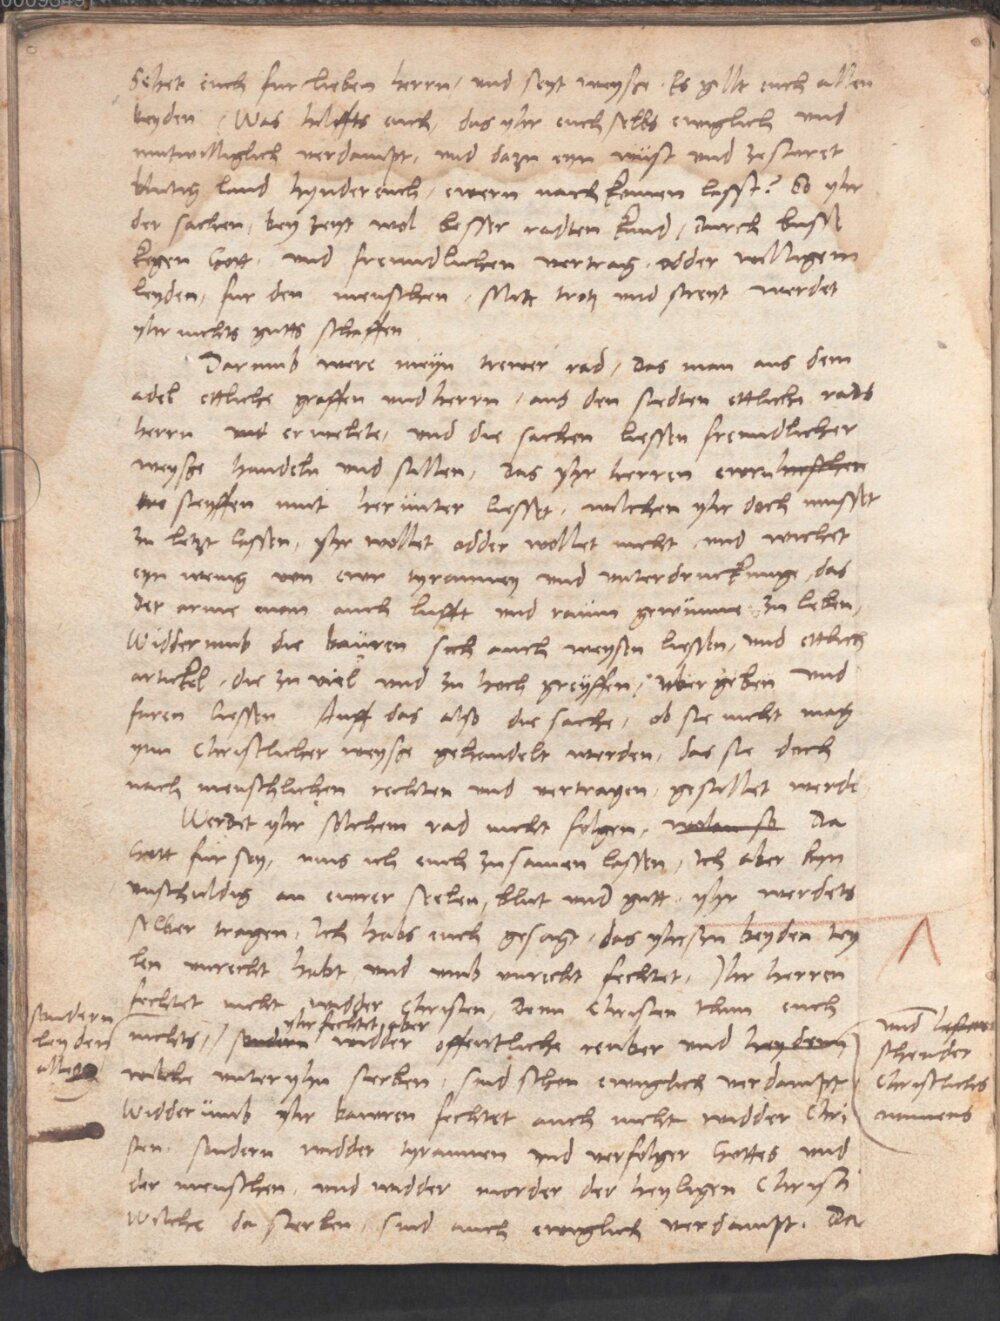 Sehet euch fur lieben herrn, und seyt weyse. Es gillt euch allen
beyden, Was hilffts euch, das yhr euch selbs ewiglich und
mutwilliglich verdampt, und dazu eyn wüst und zestoret
blutig land hynder euch, ewern nachkomen lasst? So yhr
der sachen, bey zeyt wol besser radten kund, durch busse
kegen Gott, und freundlichen vertrag, odder willigem
leyden, fur den menschen. Mitt trotz und streyt werdet
yhr nichts gutts schaffen
Darumb were meyn trewer rad, das man aus dem
adel ettliche graffen und herrn, aus den stedten ettliche rads
herrn erwelete, und die sachen liessen freundlicher
weyse handeln und stillen, das yhr herren ewrn
steyffen mut herunter liesset, wilchen yhr doch musset
zu letzt lassen, yhr wollet odder wollet nicht, und wichet
eyn wenig von ewr tyranney und unterdruckunge, das
der arme man auch lufft und raum gewünne zu leben,
Widderumb die bauren sich auch weysen liessen, und ettlich
artickel, die zu viel und zu hoch greyffen, ubergeben und
faren liessen Auff das also die sache, ob sie nicht mag
ynn Christlicher weyse gehandelt werden, das sie doch
nach menschlichen rechten und vertragen, gestillet werde
Werdet yhr solchem rad nicht folgen, wolan so Da
Gott fur sey, mus ich euch zusamen lassen, Ich aber byn
unschuldig an ewrer seelen, blut und gutt. yhr werdets
selber tragen, Ich habs euch gesagt, das yhr zu beyden tey
len unrecht habt und umb unrecht fechtet, Yhr herren
fechtet nicht widder Christen, Denn Christen thun euch
nichts, sondern widder offentliche reuber und heyden
sondern
leyden
alles
yhr fechtet aber
und lesterer
schender
Christlichs
namens
wilche unter yhn sterben, sind schon ewiglich verdampt.
Widderümb yhr bawren fechtet auch nicht widder Chri
sten, sondern widder tyrannen und verfolger Gottes und
der menschen, und widder morder der heyligen Christi
Wilche da sterben, sind auch ewiglich verdampt. Da